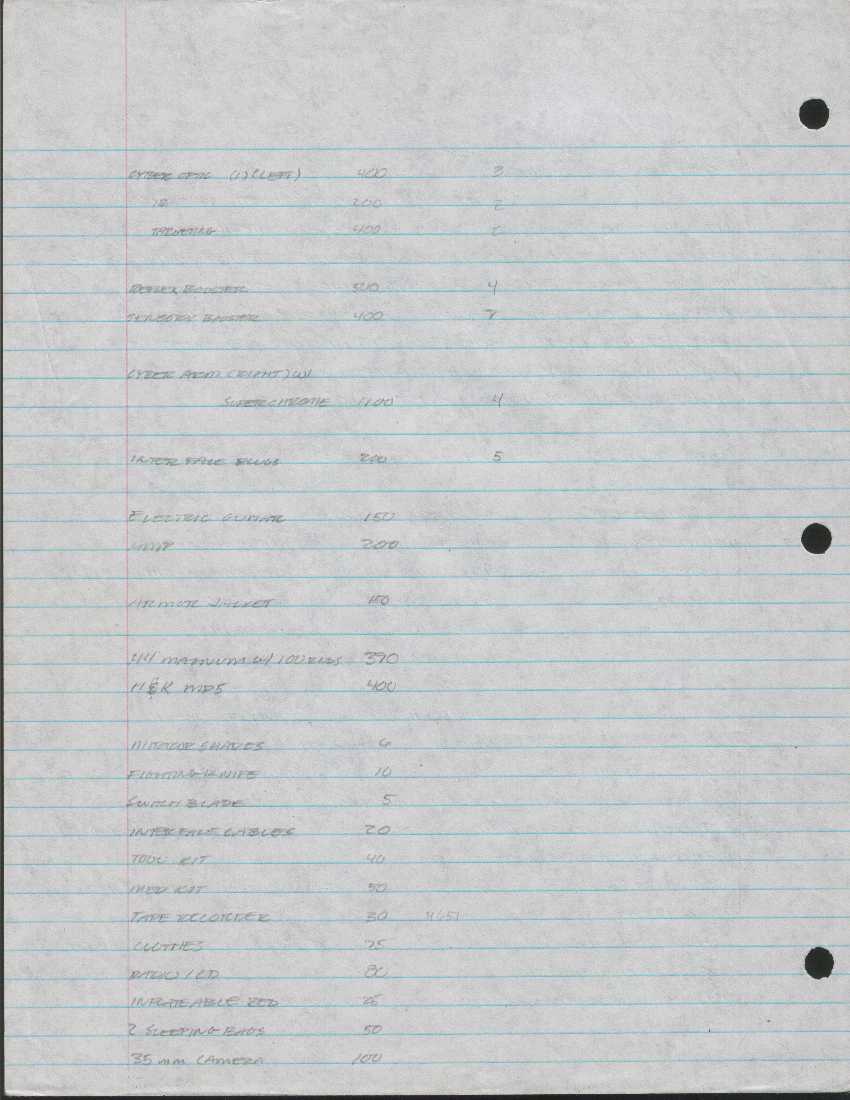 CYBER OPTIC (1) (LEFT) 400 3
IR 200 2
TARGETING 400 2
REFLEX BOOSTER 500 4
SENSORY BOOSTER 400
CYBER ARM (RIGHT) W/
SUPERCHROME 1100 4
INTERFACE PLUGS 200 5
ELECTRIC GUITAR 150
AMP 200
ARMOR JACKET 150
.44 MAGNUM W/ 100 RNDS 390
H&K MP5 400
MIRROR SHADES 6
FIGHTING KNIFE 10
SWITCH BLADE 5
INTERFACE CABLES 20
TOOL KIT 40
MED KIT 50
TAPE RECORDER 30 4651
CLOTHES 75
RADIO / CD 80
INFLATEABLE BED 25
2 SLEEPING BAGS 50
35 mm CAMERA 100